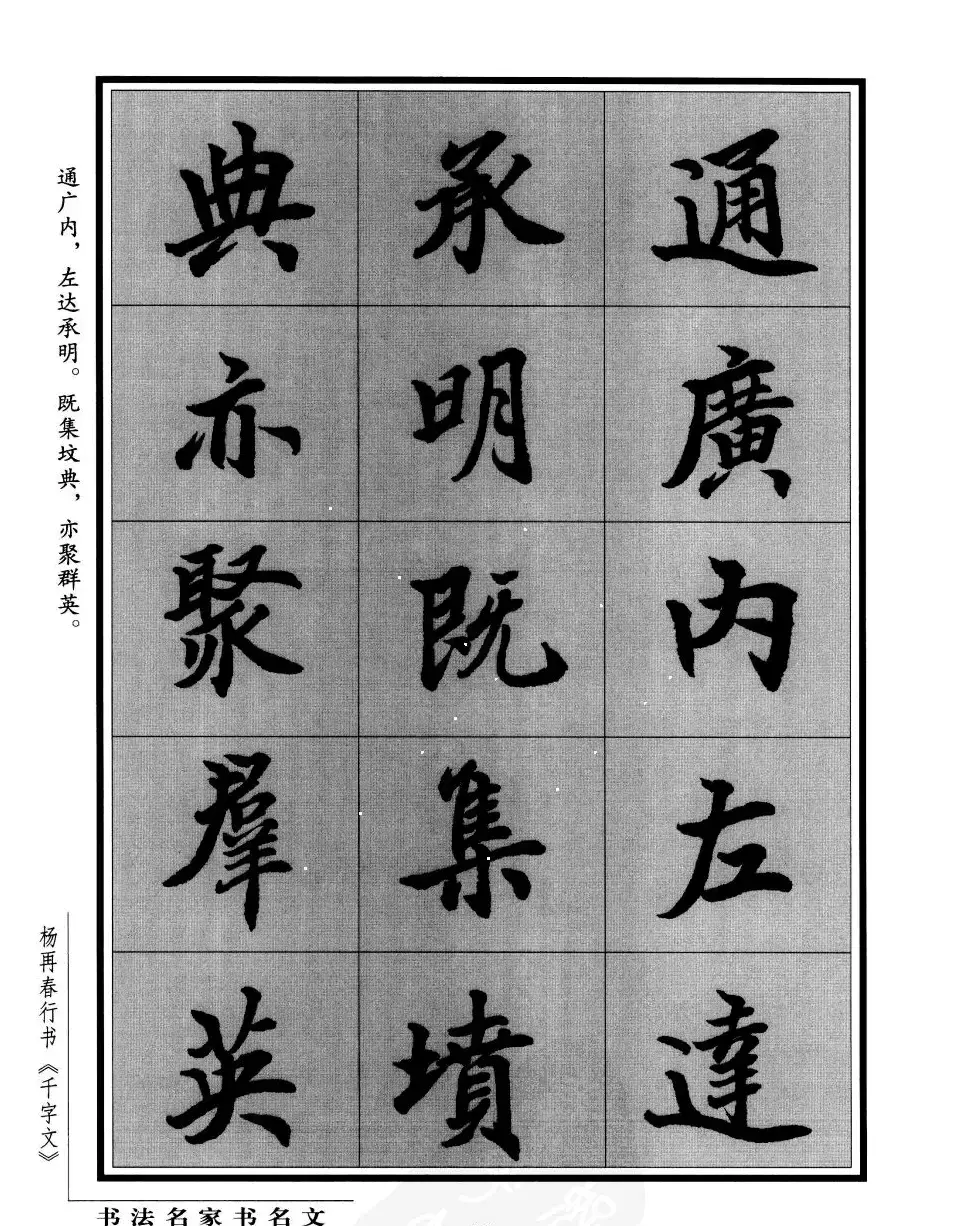 通廣内左達
承明既集墳
典亦聚羣英
通广内，左达承明。既集坟典，亦聚群英。
杨再春行书《千字文》
书法名家书名文